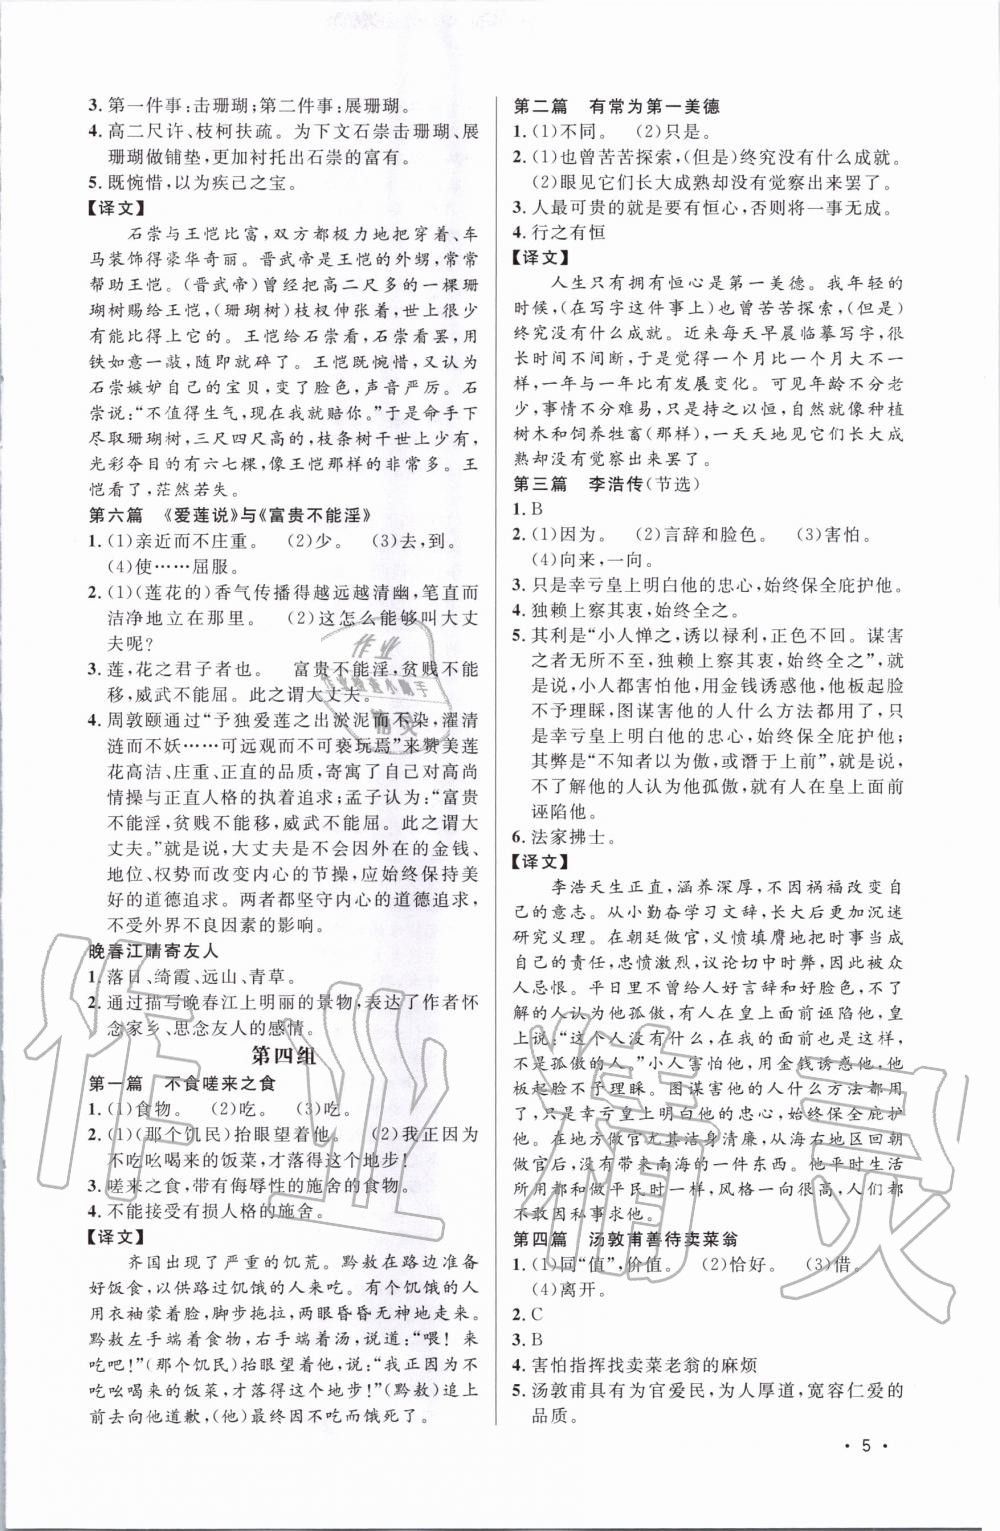 3. 第一件事:击珊瑚;第二件事:展珊瑚。
4. 高二尺许、枝柯扶疏。为下文石崇击珊瑚、展
珊瑚做铺垫,更加衬托出石崇的富有。
5. 既惋惜,以为疾己之宝。
【译文】
石崇与王恺比富,双方都极力地把穿着、车
马装饰得豪华奇丽。晋武帝是王恺的外甥,常常
帮助王恺。(晋武帝)曾经把高二尺多的一棵珊
瑚树赐给王恺,(珊瑚树)枝杈伸张着,世上很少
有能比得上它的。王恺给石崇看,石崇看罢,用
铁如意一敲,随即就碎了。王恺既惋惜,又认为
石崇嫉妒自己的宝贝,变了脸色,声音严厉。石
崇说:“不值得生气,现在我就赔你。”于是命手下
尽取珊瑚树,三尺四尺高的,枝条树干世上少有,
光彩夺目的有六七棵,像王恺那样的非常多。王
恺看了,茫然若失。
第六篇 《爱莲说》与《富贵不能淫》
1. (1)亲近而不庄重。 (2)少。 (3)去,到。
(4)使……屈服。
2. (1)(莲花的)香气传播得越远越清幽,笔直而
洁净地立在那里。 (2)这怎么能够叫大丈
夫呢?
3. 莲,花之君子者也。 富贵不能淫,贫贱不能
移,威武不能屈。此之谓大丈夫。
4. 周敦颐通过“予独爱莲之出淤泥而不染,濯清
涟而不妖……可远观而不可亵玩焉”来赞美莲
花高洁、庄重、正直的品质,寄寓了自己对高尚
情操与正直人格的执着追求;孟子认为:“富贵
不能淫,贫贱不能移,威武不能屈。此之谓大
丈夫。”就是说,大丈夫是不会因外在的金钱、
地位、权势而改变内心的节操,应始终保持美
好的道德追求。两者都坚守内心的道德追求,
不受外界不良因素的影响。
晚春江晴寄友人
1. 落日、绮霞、远山、青草。
2. 通过描写晚春江上明丽的景物,表达了作者怀
念家乡、思念友人的感情。
第四组
第一篇 不食嗟来之食
1. (1)食物。 (2)吃。 (3)吃。
2. (1)(那个饥民)抬眼望着他。 (2)我正因为
不吃吆喝来的饭菜,才落得这个地步!
3. 嗟来之食,带有侮辱性的施舍的食物。
4. 不能接受有损人格的施舍。
【译文】
齐国出现了严重的饥荒。黔敖在路边准备
好饭食,以供路过饥饿的人来吃。有个饥饿的人
用衣袖蒙着脸,脚步拖拉,两眼昏昏无神地走来。
黔敖左手端着食物,右手端着汤,说道:“喂！来
吃吧!”(那个饥民)抬眼望着他,说:“我正因为不
吃吆喝来的饭菜,才落得这个地步!”(黔敖)追上
前去向他道歉,(他)最终因不吃而饿死了。
第二篇 有常为第一美德
1. (1)不同。 (2)只是。
2. (1)也曾苦苦探索,(但是)终究没有什么成就。
(2)眼见它们长大成熟却没有觉察出来罢了。
3. 人最可贵的就是要有恒心,否则将一事无成。
4. 行之有恒
【译文】
人生只有拥有恒心是第一美德。我年轻的
时候,(在写字这件事上)也曾苦苦探索,(但是)
终究没有什么成就。近来每天早晨临摹写字,很
长时间不间断,于是觉得一个月比一个月大不一
样,一年与一年比有发展变化。可见年龄不分老
少,事情不分难易,只是持之以恒,自然就像种植
树木和饲养牲畜(那样),一天天地见它们长大成
熟却没有觉察出来罢了。
第三篇 李浩传(节选)
1. B
2. (1)因为。 (2)言辞和脸色。 (3)害怕。
(4)向来,一向。
3. 只是幸亏皇上明白他的忠心,始终保全庇护他。
4. 独赖上察其衷,始终全之。
5. 其利是“小人惮之,诱以禄利,正色不回。谋害
之者无所不至,独赖上察其衷,始终全之”,就
是说,小人都害怕他,用金钱诱惑他,他板起脸
不予理睬,图谋害他的人什么方法都用了,只
是幸亏皇上明白他的忠心,始终保全庇护他;
其弊是“不知者以为傲,或谮于上前”,就是说,
不了解他的人认为他孤傲,就有人在皇上面前
诬陷他。
6. 法家拂士。
【译文】
李浩天生正直,涵养深厚,不因祸福改变自
己的意志。从小勤奋学习文辞,长大后更加沉迷
研究义理。在朝廷做官,义愤填膺地把时事当成
自己的责任,忠愤激烈,议论切中时弊,因此被众
人忌恨。平日里不曾给人好言辞和好脸色,不了
解他的人认为他孤傲,有人在皇上面前诬陷他,皇
上说:“这个人没有什么,在我面前也是这样,不
是孤傲的人。”小人害怕他,用金钱诱惑他,他
板起脸不予理睬。图谋害他的人什么方法都用了,
只是幸亏皇上明白他的忠心,始终保全庇护
他。在地方做官尤其洁身清廉,从海右地区回朝
做官后,没有带来南海的一件东西。他平时生活
所用都和做平民时一样,风格一向很高,人们都
不敢因私事求他。
第四篇 汤敦甫善待卖菜翁
1. (1)同“值”,价值。 (2)恰好。 (3)借。
(4)离开。
2. C
3. B
4. 害怕指挥找卖菜老翁的麻烦
5. 汤敦甫具有为官爱民,为人厚道,宽容仁爱的
品质。
· 5 ·
作业精灵